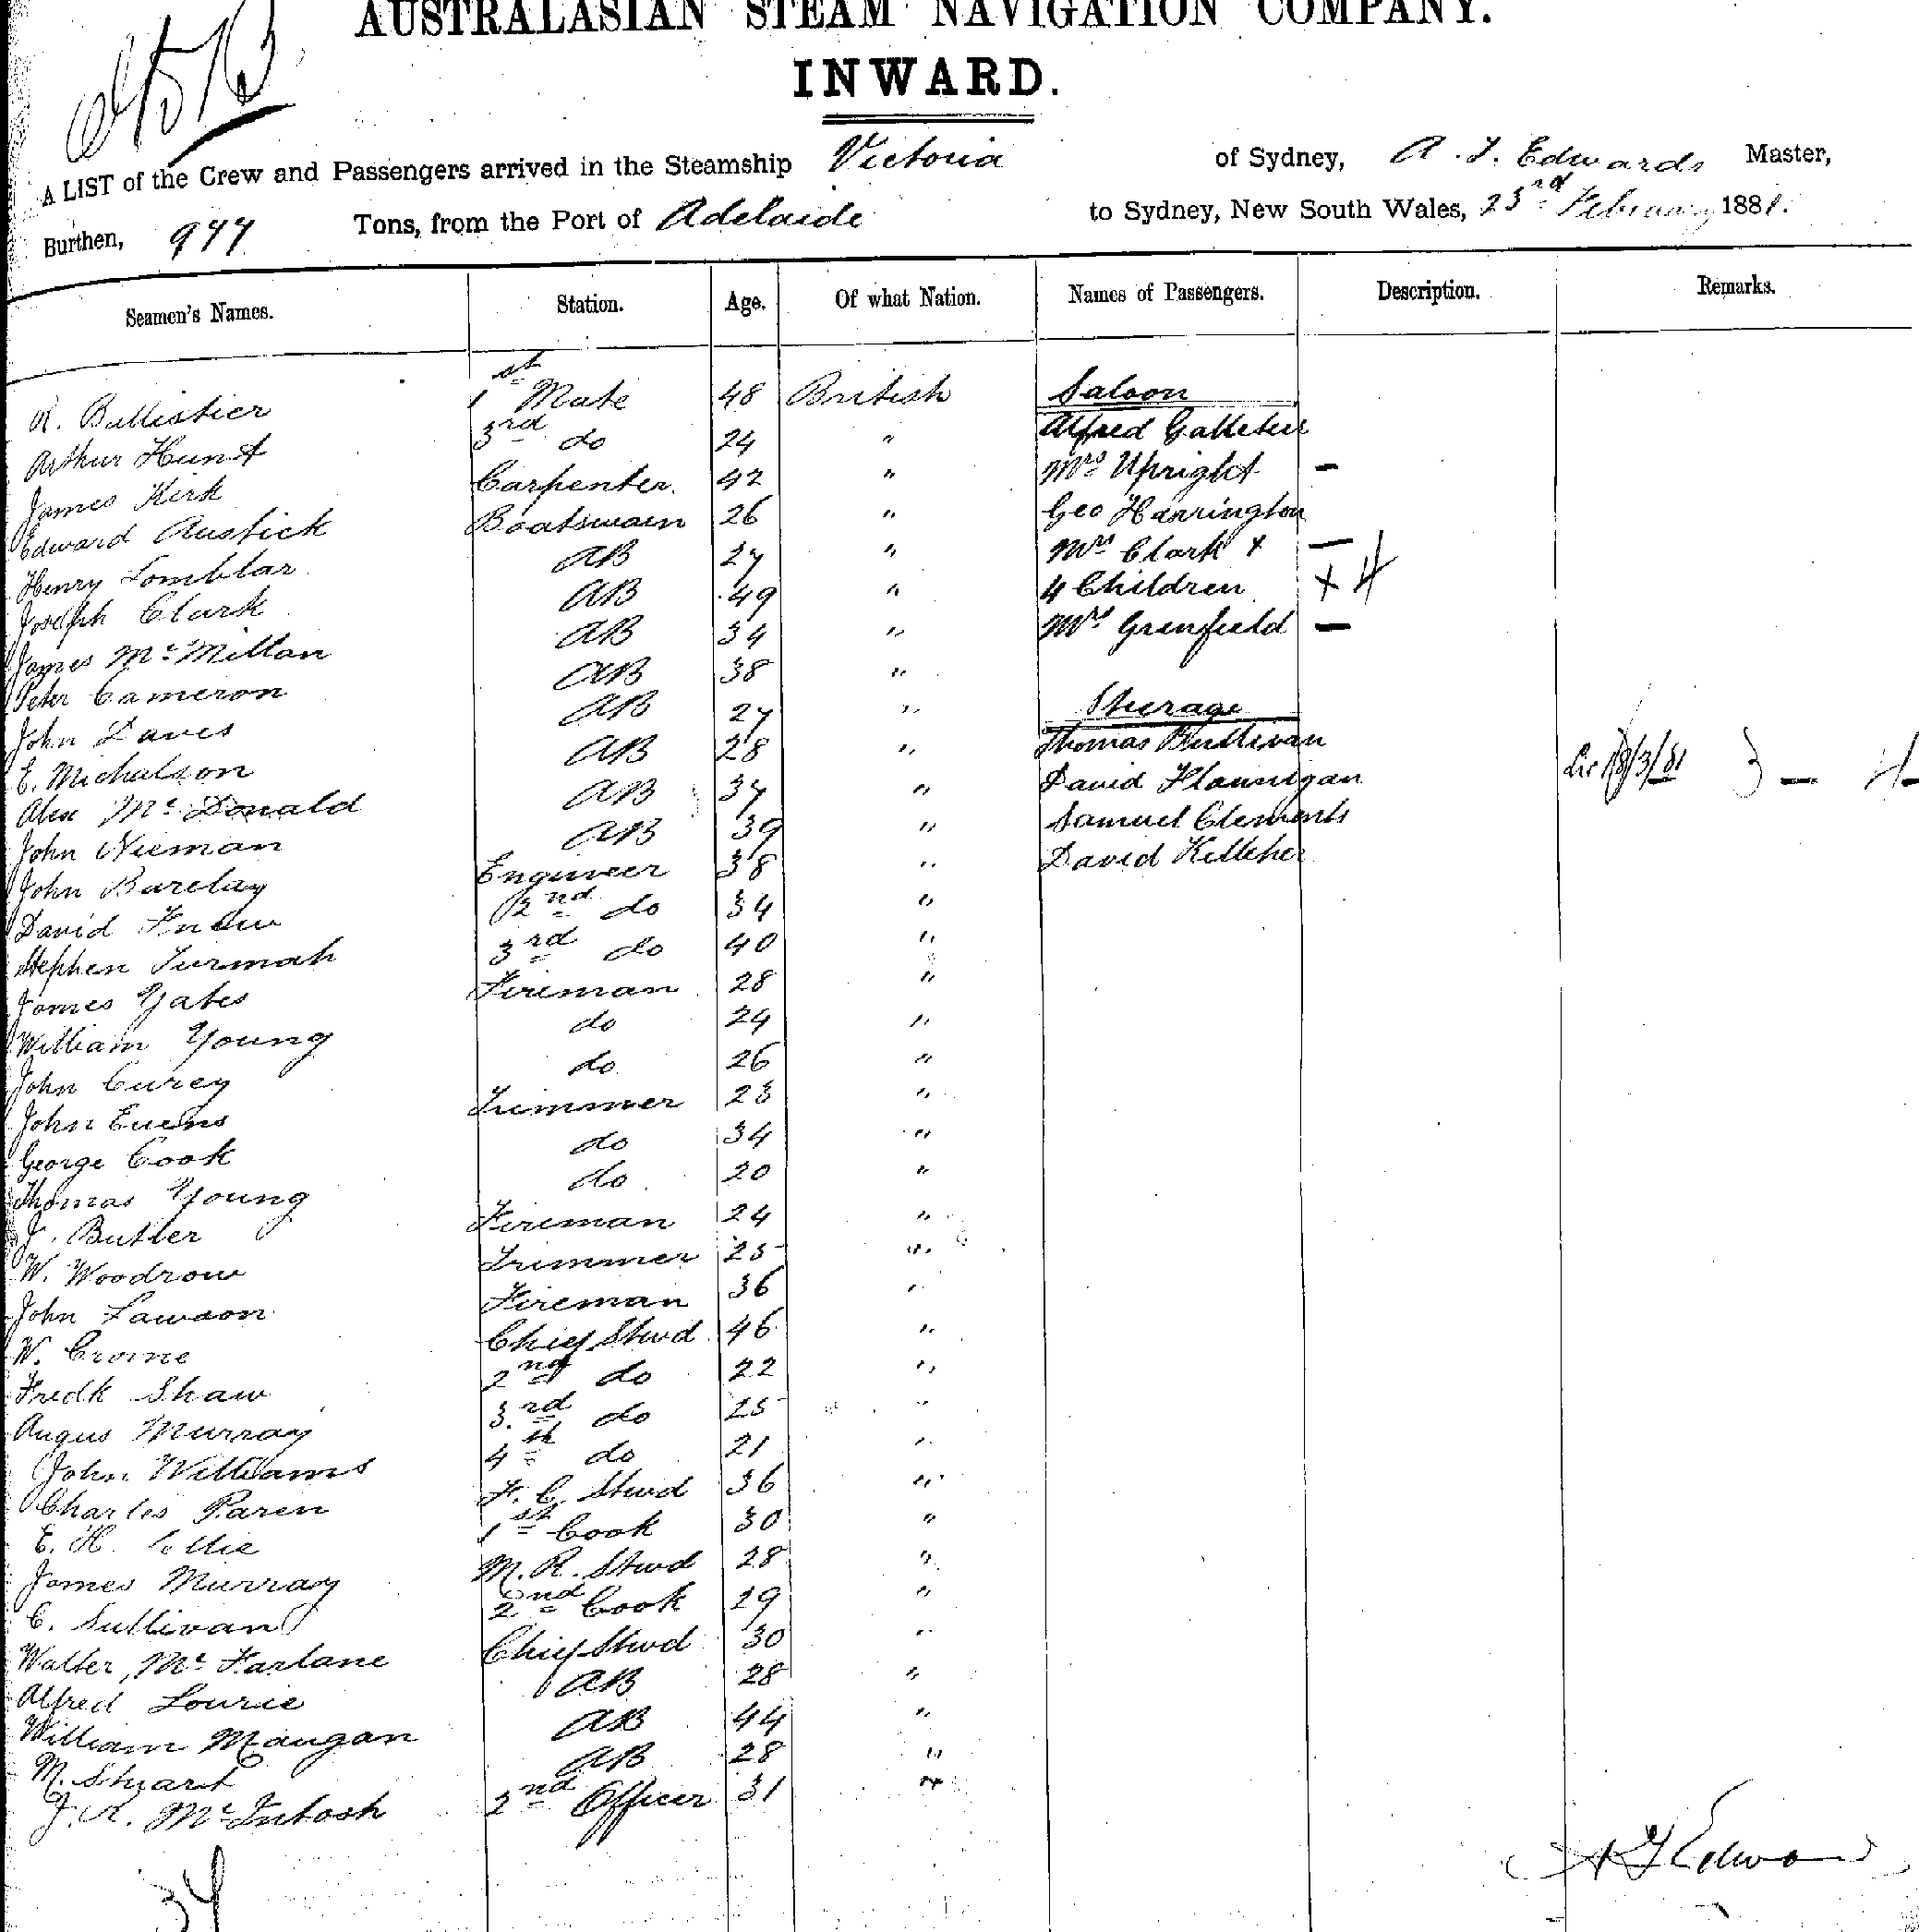 AUSTRALASIAN STEAM NAVIGATION COMPANY.
INWARD.
A LIST of the Crew and Passengers arrived in the Steamship Victoria of Sydney, A. T. Edwards Master,
Burthen, 944 Tons, from the Port of Adelaide to Sydney, New South Wales, 23rd February 1881.
Seamen's Names. Station. Age. Of what Nation. Names of Passengers. Description. Remarks.
R. Ballistier 1st Mate 48 British Saloon
Arthur Hunt 3rd do 24 " Alfred
James Kirk Carpenter. 42 " Mrs Upright –
Edward Austick Boatswain 26 " Geo Harrington
Henry AB 27 " Mrs Clark + –
Joseph Clark AB 49 " 4 Children + 4
James McMillan AB 34 " Mrs Grenfield –
Peter Cameron AB 38 "
John Daves AB 27 " Steerage
E. Michalson AB 28 " Thomas Bullivan
Alex McDonald AB 37 " David Flannigan
John Nieman AB 39 " Samuel Clements
John Barclay Engineer 38 " David Kelleher
David 2nd do 34 "
Stephen 3rd do 40 "
James Yates Fireman 28 "
William Young do 24 "
John Curey do 26 "
John Evens Trimmer 23 "
George Cook do 34 "
Thomas Young do 20 "
J. Butler Fireman 24 "
W. Woodrow Trimmer 25 "
John Lawson Fireman 36 "
W. Crome Chief Stwd 46 "
Fredk Shaw 2nd do 22 "
Angus Murray 3rd do 25 "
John Williams 4th do 21 "
Charles Paren F. C. Stwd 36 "
E. H. 1st Cook 30 "
James Murray M. R. Stwd 28 "
C. Sullivan 2nd Cook 29 "
Walter, McFarlane Chief Stwd 30 "
Alfred Lourie AB 28 "
William Mangan AB 44 "
M. Stuart AB 28 "
J. R. McIntosh 2nd Officer 31 "